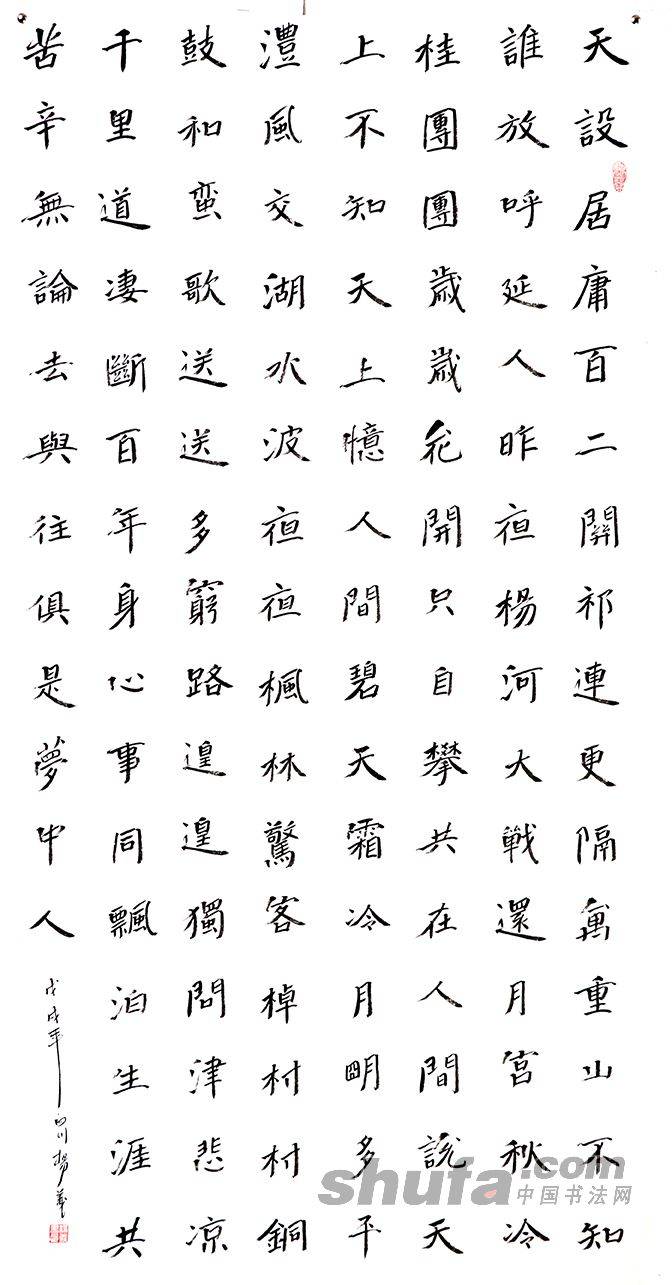 天設居庸百二關祁連更隔萬重山不知
誰放呼延人昨夜楊河大戰還月宮秋冷
桂團團歲歲花開只自攀共在人間說天
上不知天上憶人間碧天霜冷月明多平
澧風交湖水波夜夜楓林驚客棹村村銅
鼓和蛮歌送送多窮路遑遑獨問津悲凉
千里道凄斷百年身心事同飄泊生涯共
苦辛無論去與往俱是夢中人
戊戌年
shufa.com
中国书法网